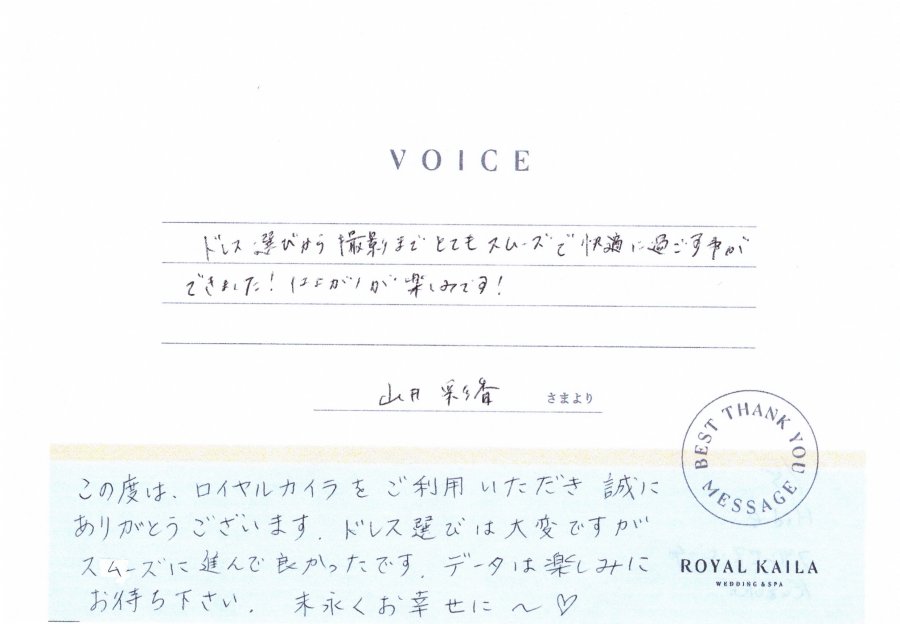 VOICE
ドレス選びから撮影までとてもスムーズで快適に過ごす事が
できました! 仕上がりが楽しみです!
山井 彩香 さまより
BEST THANK YOU MESSAGE
この度は、ロイヤルカイラをご利用いただき誠に
ありがとうございます。ドレス選びは大変ですが
スムーズに進んで良かったです。データは楽しみに
お待ち下さい。 末永くお幸せに〜♡
ROYAL KAILA
WEDDING & SPA